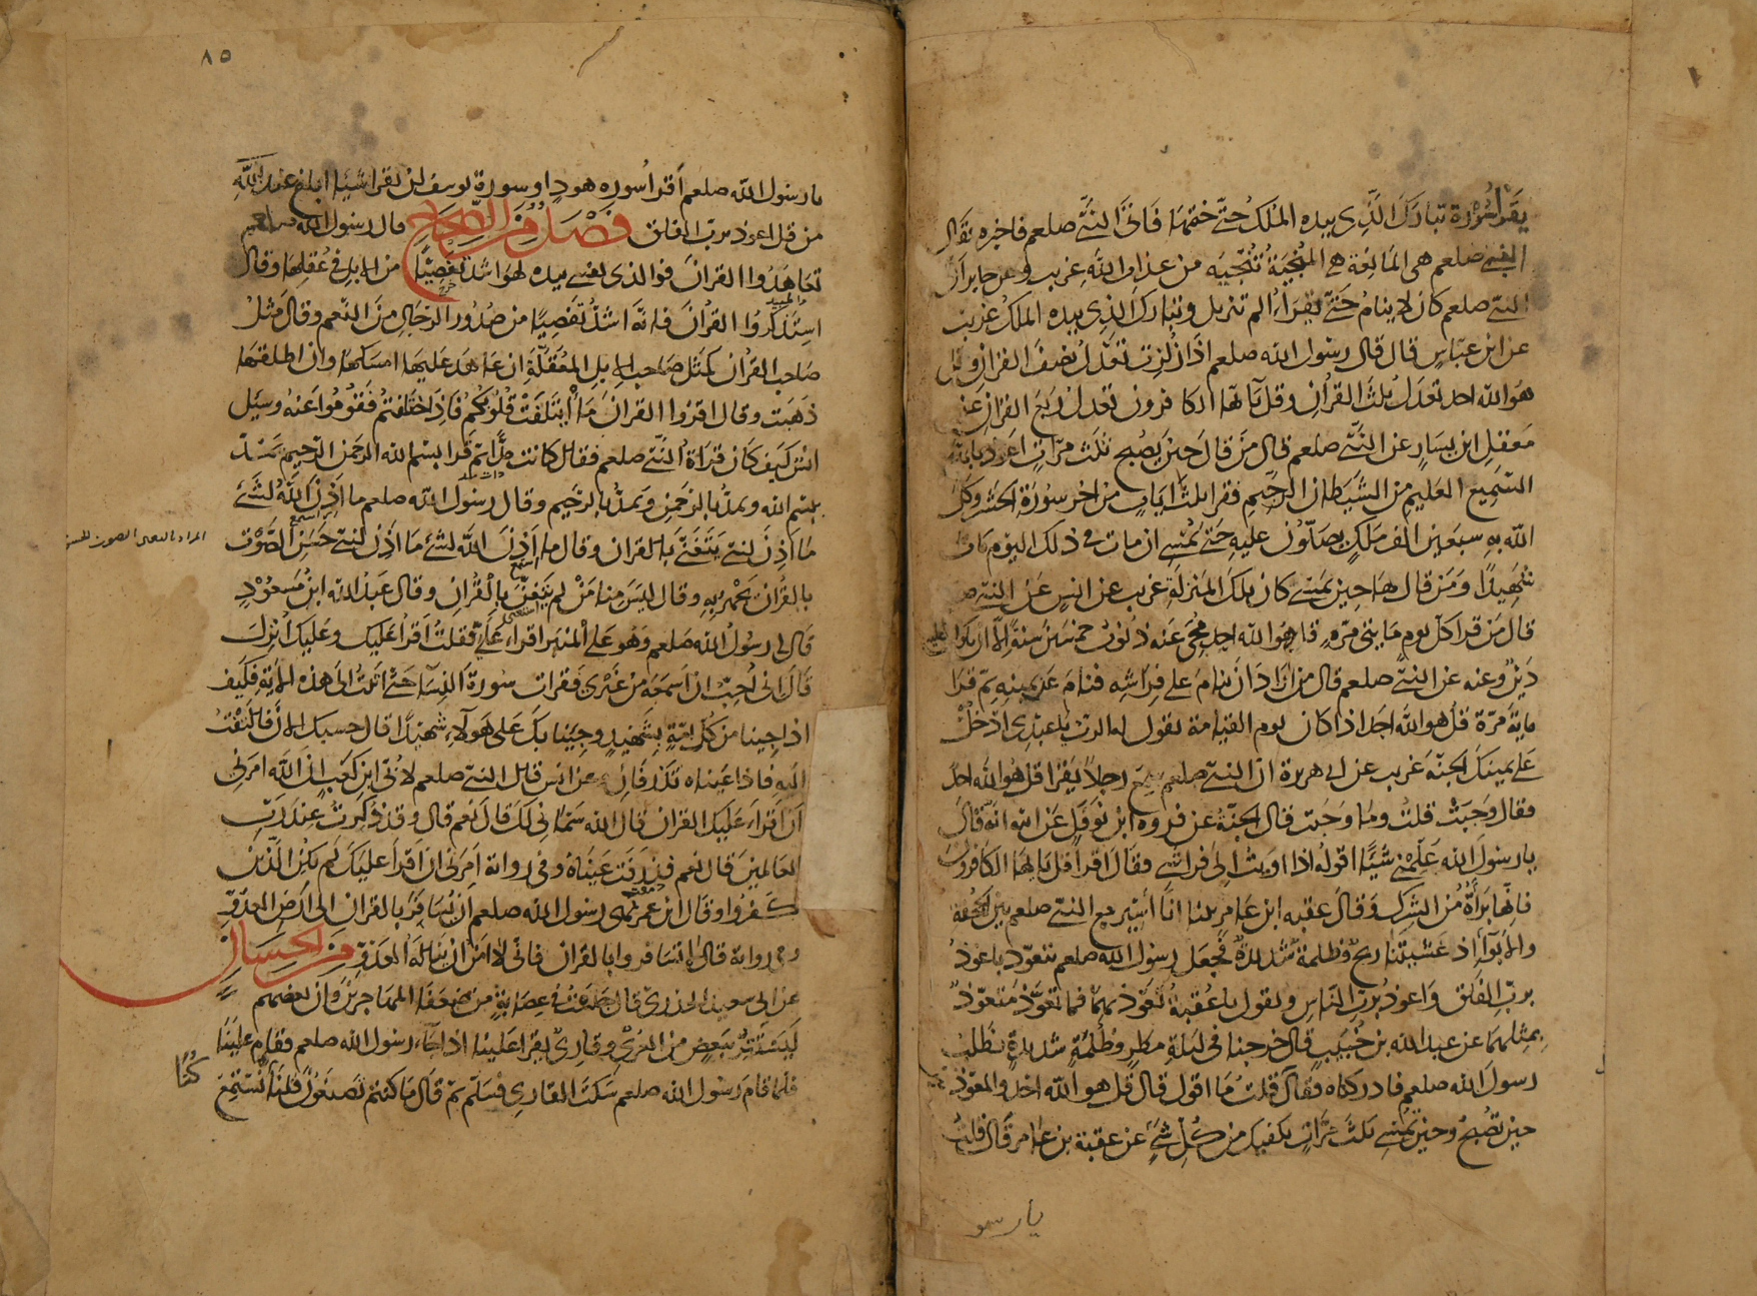 يَقْرَأُ سُوْرَة تبارَكَ الَّذِي بيده الملكُ حتّٰے ختمَهَا فَاتَى النَّبِىَّ صلعم فاخبره فقال
النبىّ صلعم هى المَانِعَة هى المُنْجِيَةُ تُنْجِيهِ من عذاب اللّٰهِ غريب وعن جابر انّ
النبىّ صلعم كان لا ينامُ حَتّٰى يقرَأَ الم تنزيل وتبارك الذى بيده الملك غريب
عن ابن عبّاسٍ قال قال رسول اللّٰه صلعم اذا زُلزلت تَعْدِلُ نِصْفَ القرانِ وقل
هو اللّٰه احد تعدل ثلثَ القُرانِ وقل يٰا يها الكافرون تعدل ربع القرانِ عن
مَعقلِ ابن يسَارٍ عن النَّبىّ صلعم قال من قال حين يصْبِح ثلٰث مرّاتٍ اعوذ باللّٰه
السّميع العَليمِ من الشيطان الرجيمِ فقرا ثلثَ اٰياتٍ من اٰخر سورَة الحشر وكل
اللّٰه به سبعين الف مَلَكٍ يصَلّون عليهِ حَتّٰى يُمْسِى ان مات فى ذلك اليوم مَات
شهِيدًا وَمَن قال هَا حين يُمْسى كان بتلكَ المَنزلَةِ غريب عن انسٍ عَن النبىّ صلعم
قال مَن قراَ كلّ يومٍ مَايتى مرّةٍ قل هُوَ اللّٰه احد مُحِىَ عنه ذنوب خمسينَ سَنَةً الّا ان يكونَ عليه
دَينٌ وعنه عن النبىّ صلعم قال من اَرادَ اَن يَنامَ على فِراشِه فنامَ على يمينِهِ ثمّ قرَا
ماية مرّة قل هو اللّٰه احد اذا كان يوم القيٰامة يقول له الربّ يا عبدى ادْخُلْ
عَلى يمينك الجنّة غريب عن ابى هريرة انّ النبىّ صلعم سَمِعَ رجلاً يَقْرَا قل هو اللّٰه احدٌ
فقال وَجَبَتْ قلتُ ومَا وَجَبَت قال الجنّة عن فروة ابن نَوفَلٍ عَن ابيه انّه قالَ
يا رسولَ اللّٰه عَلِّمْنِى شيئًا اقولهُ اذا اويت الى فراشى فقالَ اقرا قل يا يها الكافرون
فانّها بَرَأةٌ مِن الشركِ وَقال عقبه ابن عَامِرٍ بينا اَنَا اسِير مع النبى صلعم بين الجُحْفة
والاَبْوَآءِ اذ غشيتنا ريحٌ وظلمة شديدة فجعل رسول اللّٰه صلعم يتعوّذ باعوذ
بربّ الفَلَق وَاعوذ بربّ النّاسِ ويقول يا عُقبة تَعَوّذ بهمَا فما تعوّذ متعوّذٌ
بمِثلِهِمَا عن عبد اللّٰه بن خُبَيبٍ قال خرجنا فى ليلةِ مَطرٍ وظُلمَةٍ شديدةٍ نَطلُبُ
رسولَ اللّٰه صلعم فادركناه فقال قل قلتُ مَا اقول قال قل هو اللّٰه احد والمعوّذتين
حين تصْبحُ وحين تُمْسِى ثلٰثَ مَرّاتٍ تكفيك من كُلّ شَىءٍ عن عقبة بن عامر قال قلتُ
يا رسو
٨٥
يا رسول اللّٰه صلعم اَقراُ سوره هودٍ او سورة يوسف قال لن تقرا شيئا ابلغ عند اللّٰهِ
من قل اعوذ بربّ الفلق فَصْلٌ مِن الصِّحَاحِ قال رسول اللّٰه صلعم
تعَاهَدُوا القرانَ فوالذى نفسى بيده لهو اشدّ تفصِّيًا من الابل فى عُقلِها وقال
استذكروا القرانَ فانّه اشدُّ تفصِيًا من صُدُور الرّجَالِ من النّعَمِ وقال مثلُ
صَاحب القُرْان كمَثل صَاحب الابلِ المُعَقَّلَةِ ان عَاهَدَ عَليهَا امسَكهَا وان اطلقهَا
ذَهَبَت وقال اقرَؤا القرانَ مَا ائتَلَفَتْ قُلُوبُكُمْ فَاِذَا اختلفتم فَقُومُوا عَنْهُ وسئل
انسٌ كَيفَ كَان قراةُ النبىّ صلعم فقال كانت مدًّا ثمّ قرا بسم اللّٰه الرحمن الرّحيم يمُدّ
ببسْم اللّٰه ويمدّ بالرّحمنِ ويمدّ بالرّحيم وقال رسول اللّٰه صلعم ما اذِنَ اللّٰه لشئ
مَا اذِنَ لنبىّ يَتَغَنّى بالقران وقال ما اَذِنَ اللّٰه لشئ مَا اذِنَ لنبىّ حَسَنِ الصَّوْتِ
بالقُران يَجْهَر بِهِ وقال ليسَ مِنا مَنْ لم يتغَنّ بالْقُرانِ وقال عَبدُ اللّٰه ابنُ مَسعُوْدٍ
قال لى رسولُ اللّٰه صلعم وَهُو على المنبر اقرا علىّ فقلتُ اَقراُ عَليك وعَليك اُنزِلَ
قال انى احِبّ ان اسمَعه من غيرى فقرات سورة النّسآ حتّى اتيتُ الى هذه الاٰية فكيف
اذا جِئنا من كلّ امّةٍ بِشَهيدٍ وجِئنا بكَ على هٰؤلاءِ شهيدًا قال حسبك الاٰن فالتفتّ
اليهِ فاذا عَيناه تَذْرِفَانِ عن انس قال النبىّ صلعم لاُبىّ ابن كَعبٍ انّ اللّٰه امرنى
اَن اَقراَ عَليكَ القران قال اللّٰه سَمّانى لكَ قالَ نَعم قال وقد ذُكِرتُ عِند رَبِّ
العَالمين قال نعم فذرفَت عَينَاهُ وفى رواية امَرنى ان اقراَ عليكَ لم يكُنِ الّذين
كفروا وقال ابن عمر نهى رسول اللّٰه صلعم ان يُسَافرَ بالقران الى ارض العدوّ
وفى رواية قال لا تسَافروا بالقران فانّى لا امَن ان ينَالَه العدوّ مِن الحِسَانِ
عن ابى سعيد الخدرىّ قال جلستُ فى عِصَابةٍ من ضُعَفَا المهاجرينَ وان بعضهم
لَيَستَتِرُ ببَعضٍ من العُرْىِ وقارِئٌ يقرا عَلينا اذا جاء رسول اللّٰه صلعم فقام علينَا
فلمّا قامَ رسُول اللّٰه صلعم سَكَت القارى فسَلّم ثمّ قال مَا كنتم تَصنَعُونَ قلنا نستمعُ
كُنَّا